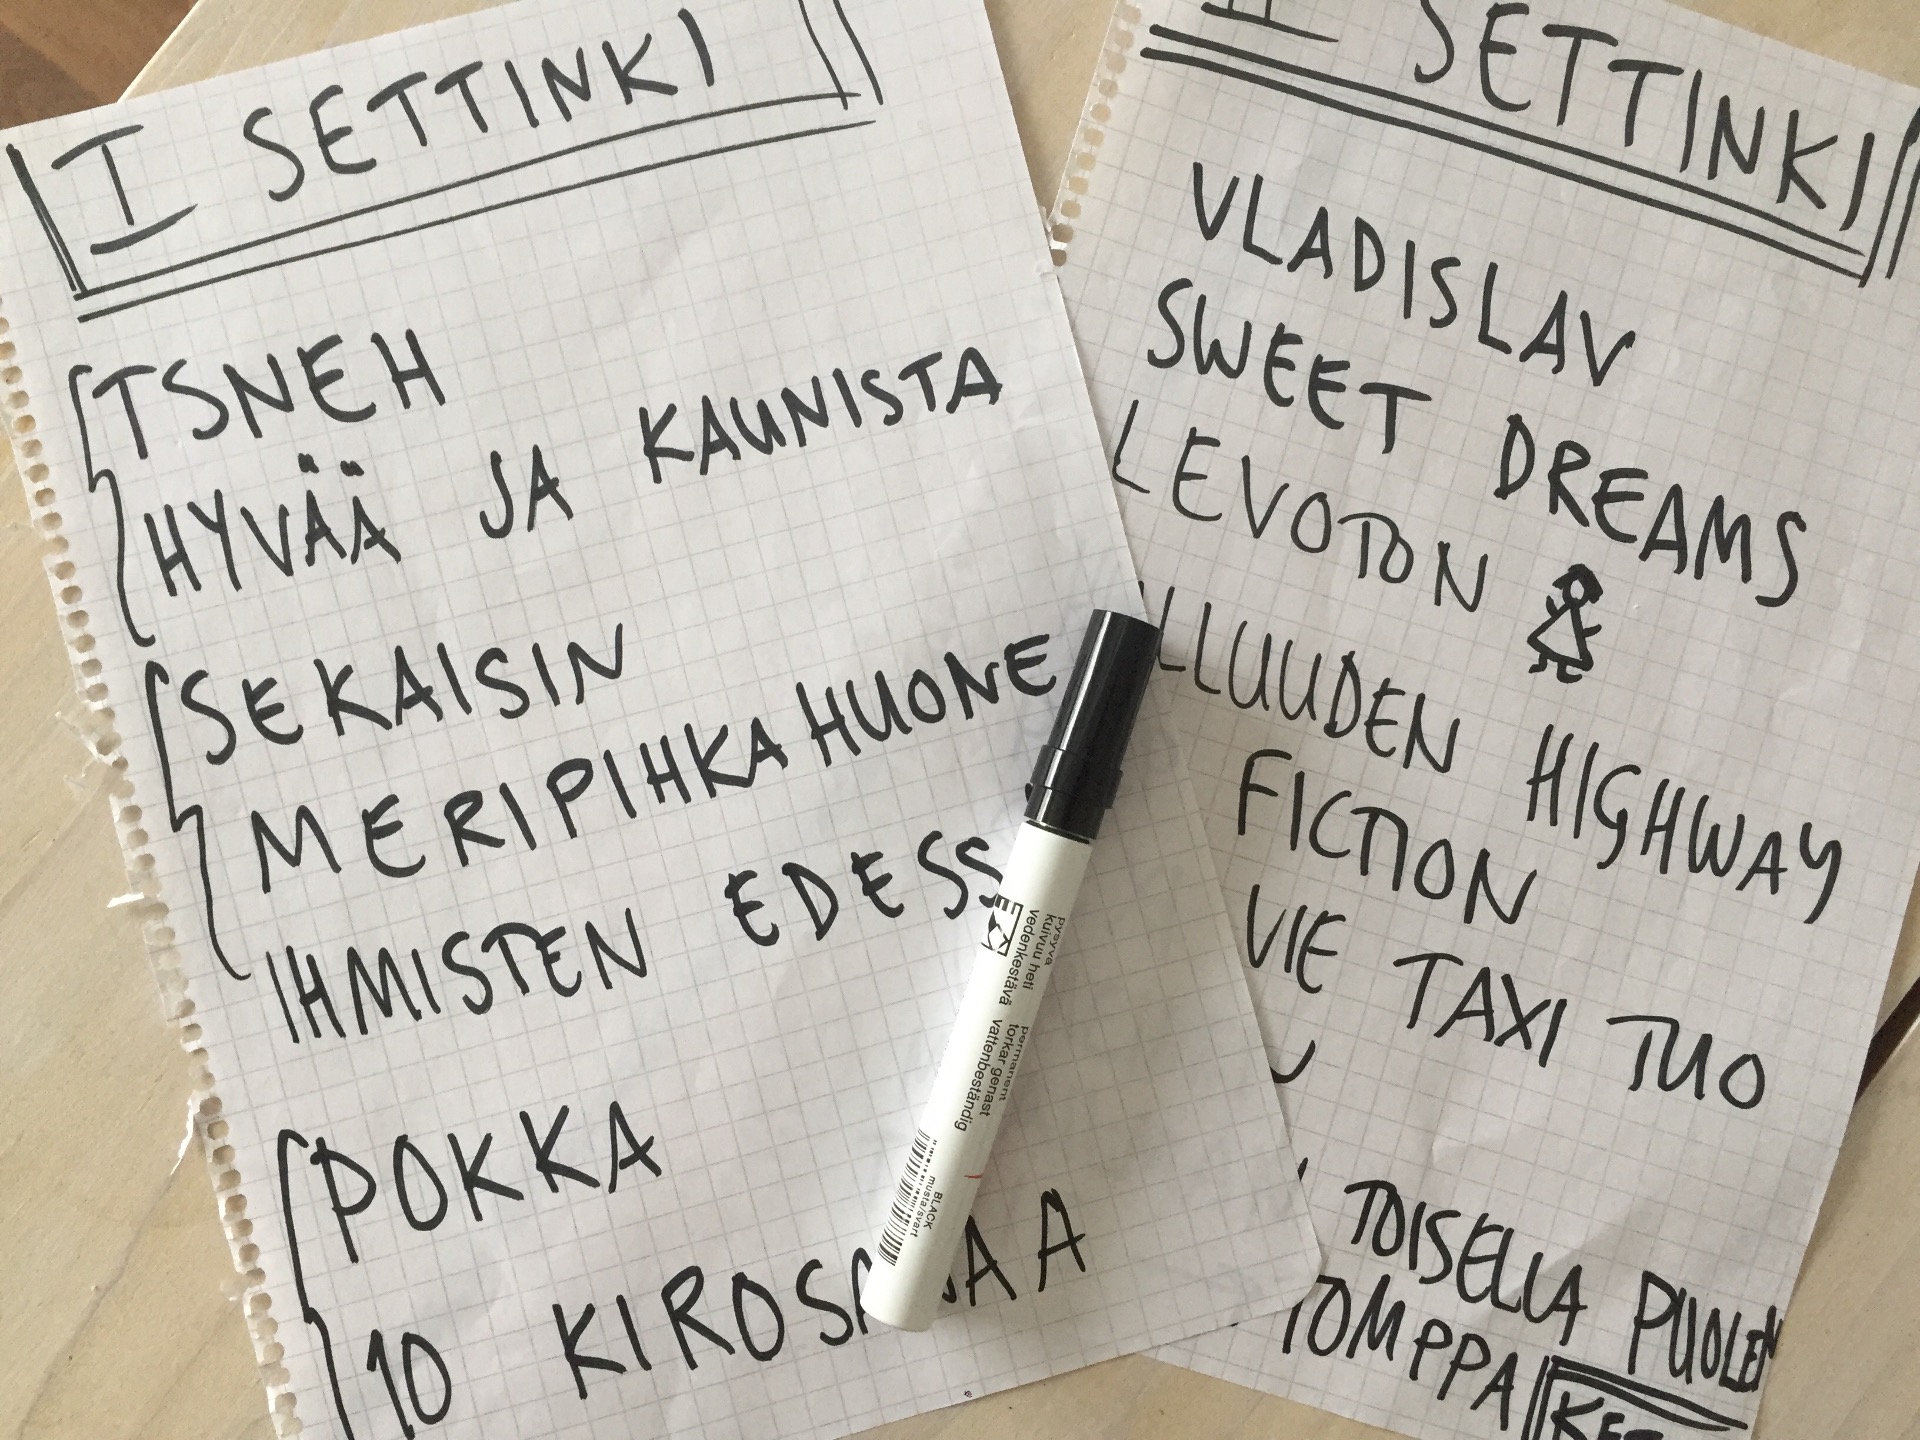 I SETTINKI
TSNEH
HYVÄÄ JA KAUNISTA
SEKAISIN
MERIPIHKAHUONE
IHMISTEN EDESS
POKKA
10 KIROSANAA
II SETTINKI
VLADISLAV
SWEET DREAMS
LEVOTON
LLUUDEN HIGHWAY
FICTION
VIE TAXI TUO
TOISELLA PUOLEN
TOMPPA
pysyvä
kuivuu heti
vedenkestävä
permanent
torkar genast
vattenbeständig
BLACK
musta/svart